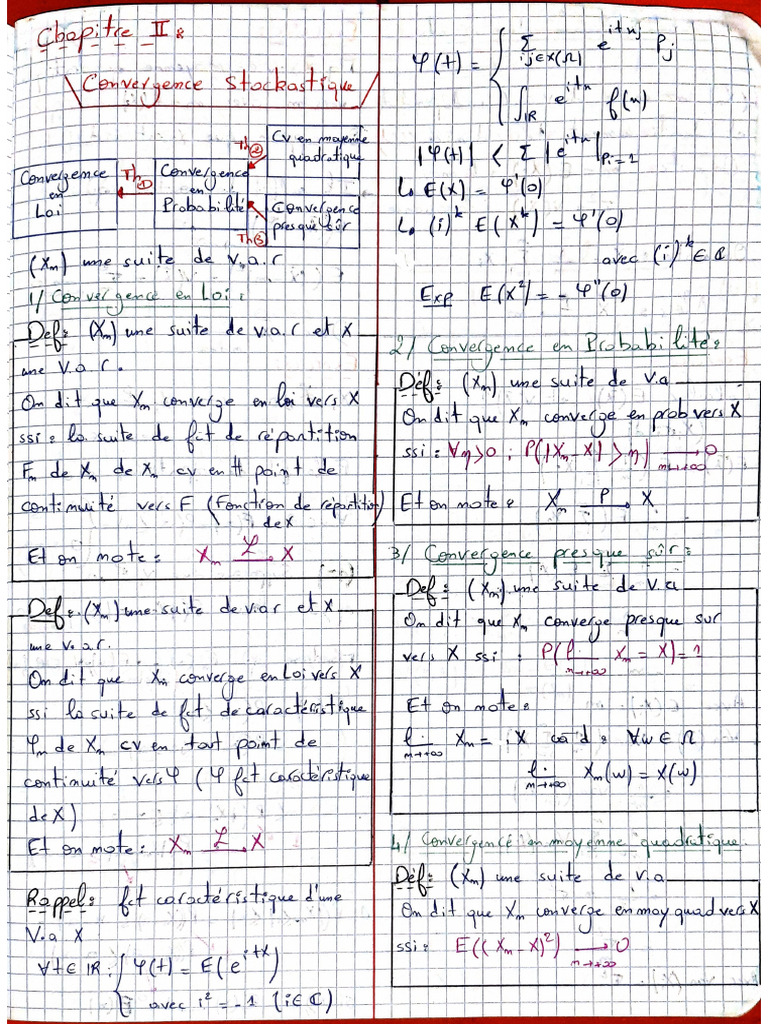 Chapitre II :
Convergence Stockastique
Convergence en Loi
Th ①
Convergence en Probabilité
Th ②
CV en moyenne quadratique
Th ③
Convergence presque sûr
(Xn) une suite de v.a.r
1/ Convergence en Loi :
Def : (Xn) une suite de v.a.r et X
une v.a.r.
On dit que Xn converge en loi vers X
ssi : la suite de fct de répartition
Fn de Xn de Xn cv en tt point de
continuité vers F (Fonction de répartition)
de X
Et on note : Xn —ℒ→ X
Def : (Xn) une suite de v.ar et X
une v.ar.
On dit que Xn converge en Loi vers X
ssi la suite de fct de caractéristique
φn de Xn cv en tout point de
continuité vers φ (φ fct caractéristique
de X)
Et on note : Xn —ℒ→ X
Rappel : fct caractéristique d'une
V.a X
∀t ∈ IR : { φ(t) = E(e^{itX})
avec i² = -1 (i ∈ ℂ)
φ(t) = { Σ_{ij∈X(Ω)} e^{itxj} Pj
∫_{IR} e^{itx} f(x)
|φ(t)| < Σ |e^{itx}|_{Pi=1}
↳ E(X) = φ'(0)
↳ (i)^k E(X^k) = φ'(0)
avec (i)^k ∈ ℂ
Exp E(X²) = - φ''(0)
2/ Convergence en Probabilité :
Déf : (Xn) une suite de v.a
On dit que Xn converge en prob vers X
ssi : ∀η > 0 ; P(|Xn - X| > η) —→ 0
n→+∞
Et on note : Xn —P→ X
3/ Convergence presque sûr :
Def : (Xn) une suite de v.a
On dit que Xn converge presque sur
vers X ssi : P(l. Xn = X) = 1
n→+∞
Et on note :
l. Xn = X càd : ∀w ∈ Ω
n→+∞
l. Xn(w) = X(w)
n→+∞
4/ Convergence en moyenne quadratique.
Déf : (Xn) une suite de v.a
On dit que Xn converge en moy quad vers X
ssi : E((Xn - X)²) —→ 0
n→+∞